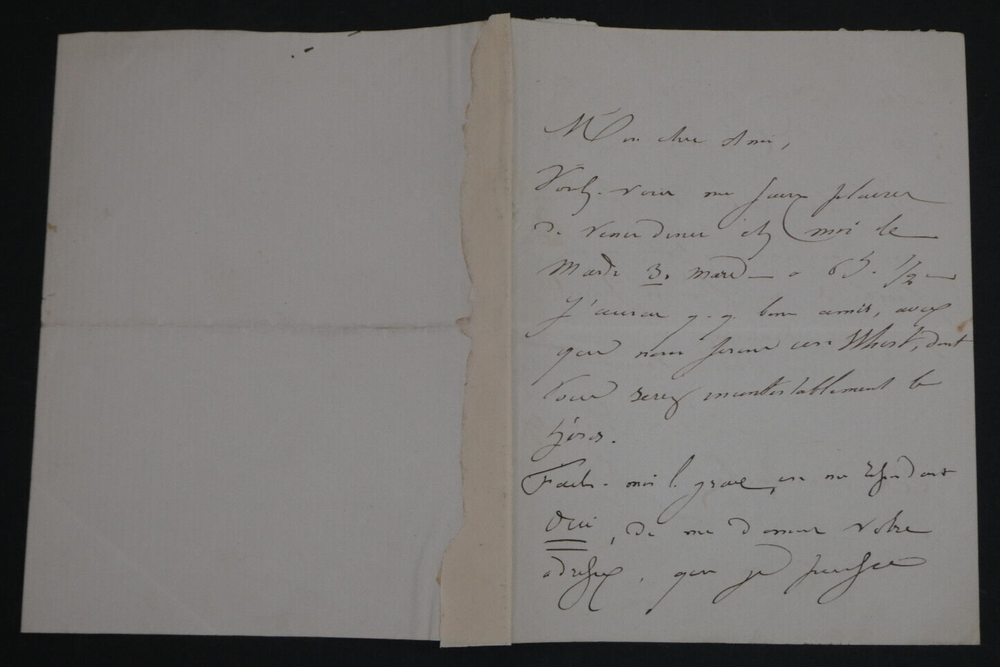 Mon cher Ami,
Voulez-vous me faire plaisir
de venir diner chez moi le
Mardi 3. mars à 6h. 1/2
J'aurai q.q. bons amis, avec
qui nous ferons un Whist, dont
vous serez incontestablement le
héros.
Faites-moi l. grace, en me répondant
Oui, de me donner votre
adresse, que je puisse